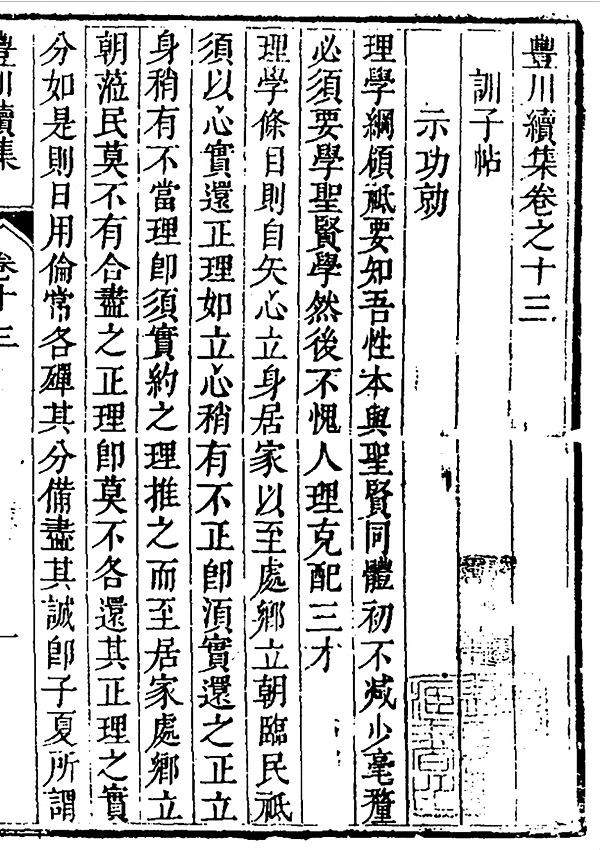 豐川續集卷之十三
訓子帖
示功勍
理學綱領祗要知吾性本與聖賢同體初不减少毫釐
必須要學聖賢學然後不愧人理克配三才
理學條目則自矢心立身居家以至處鄉立朝臨民祗
須以心實還正理如立心稍有不正卽須實還之正立
身稍有不當理卽須實約之理推之而至居家處鄉立
朝蒞民莫不有合盡之正理卽莫不各還其正理之實
分如是則日用倫常各殫其分備盡其誠卽子夏所謂
豐川續集
卷十三
一